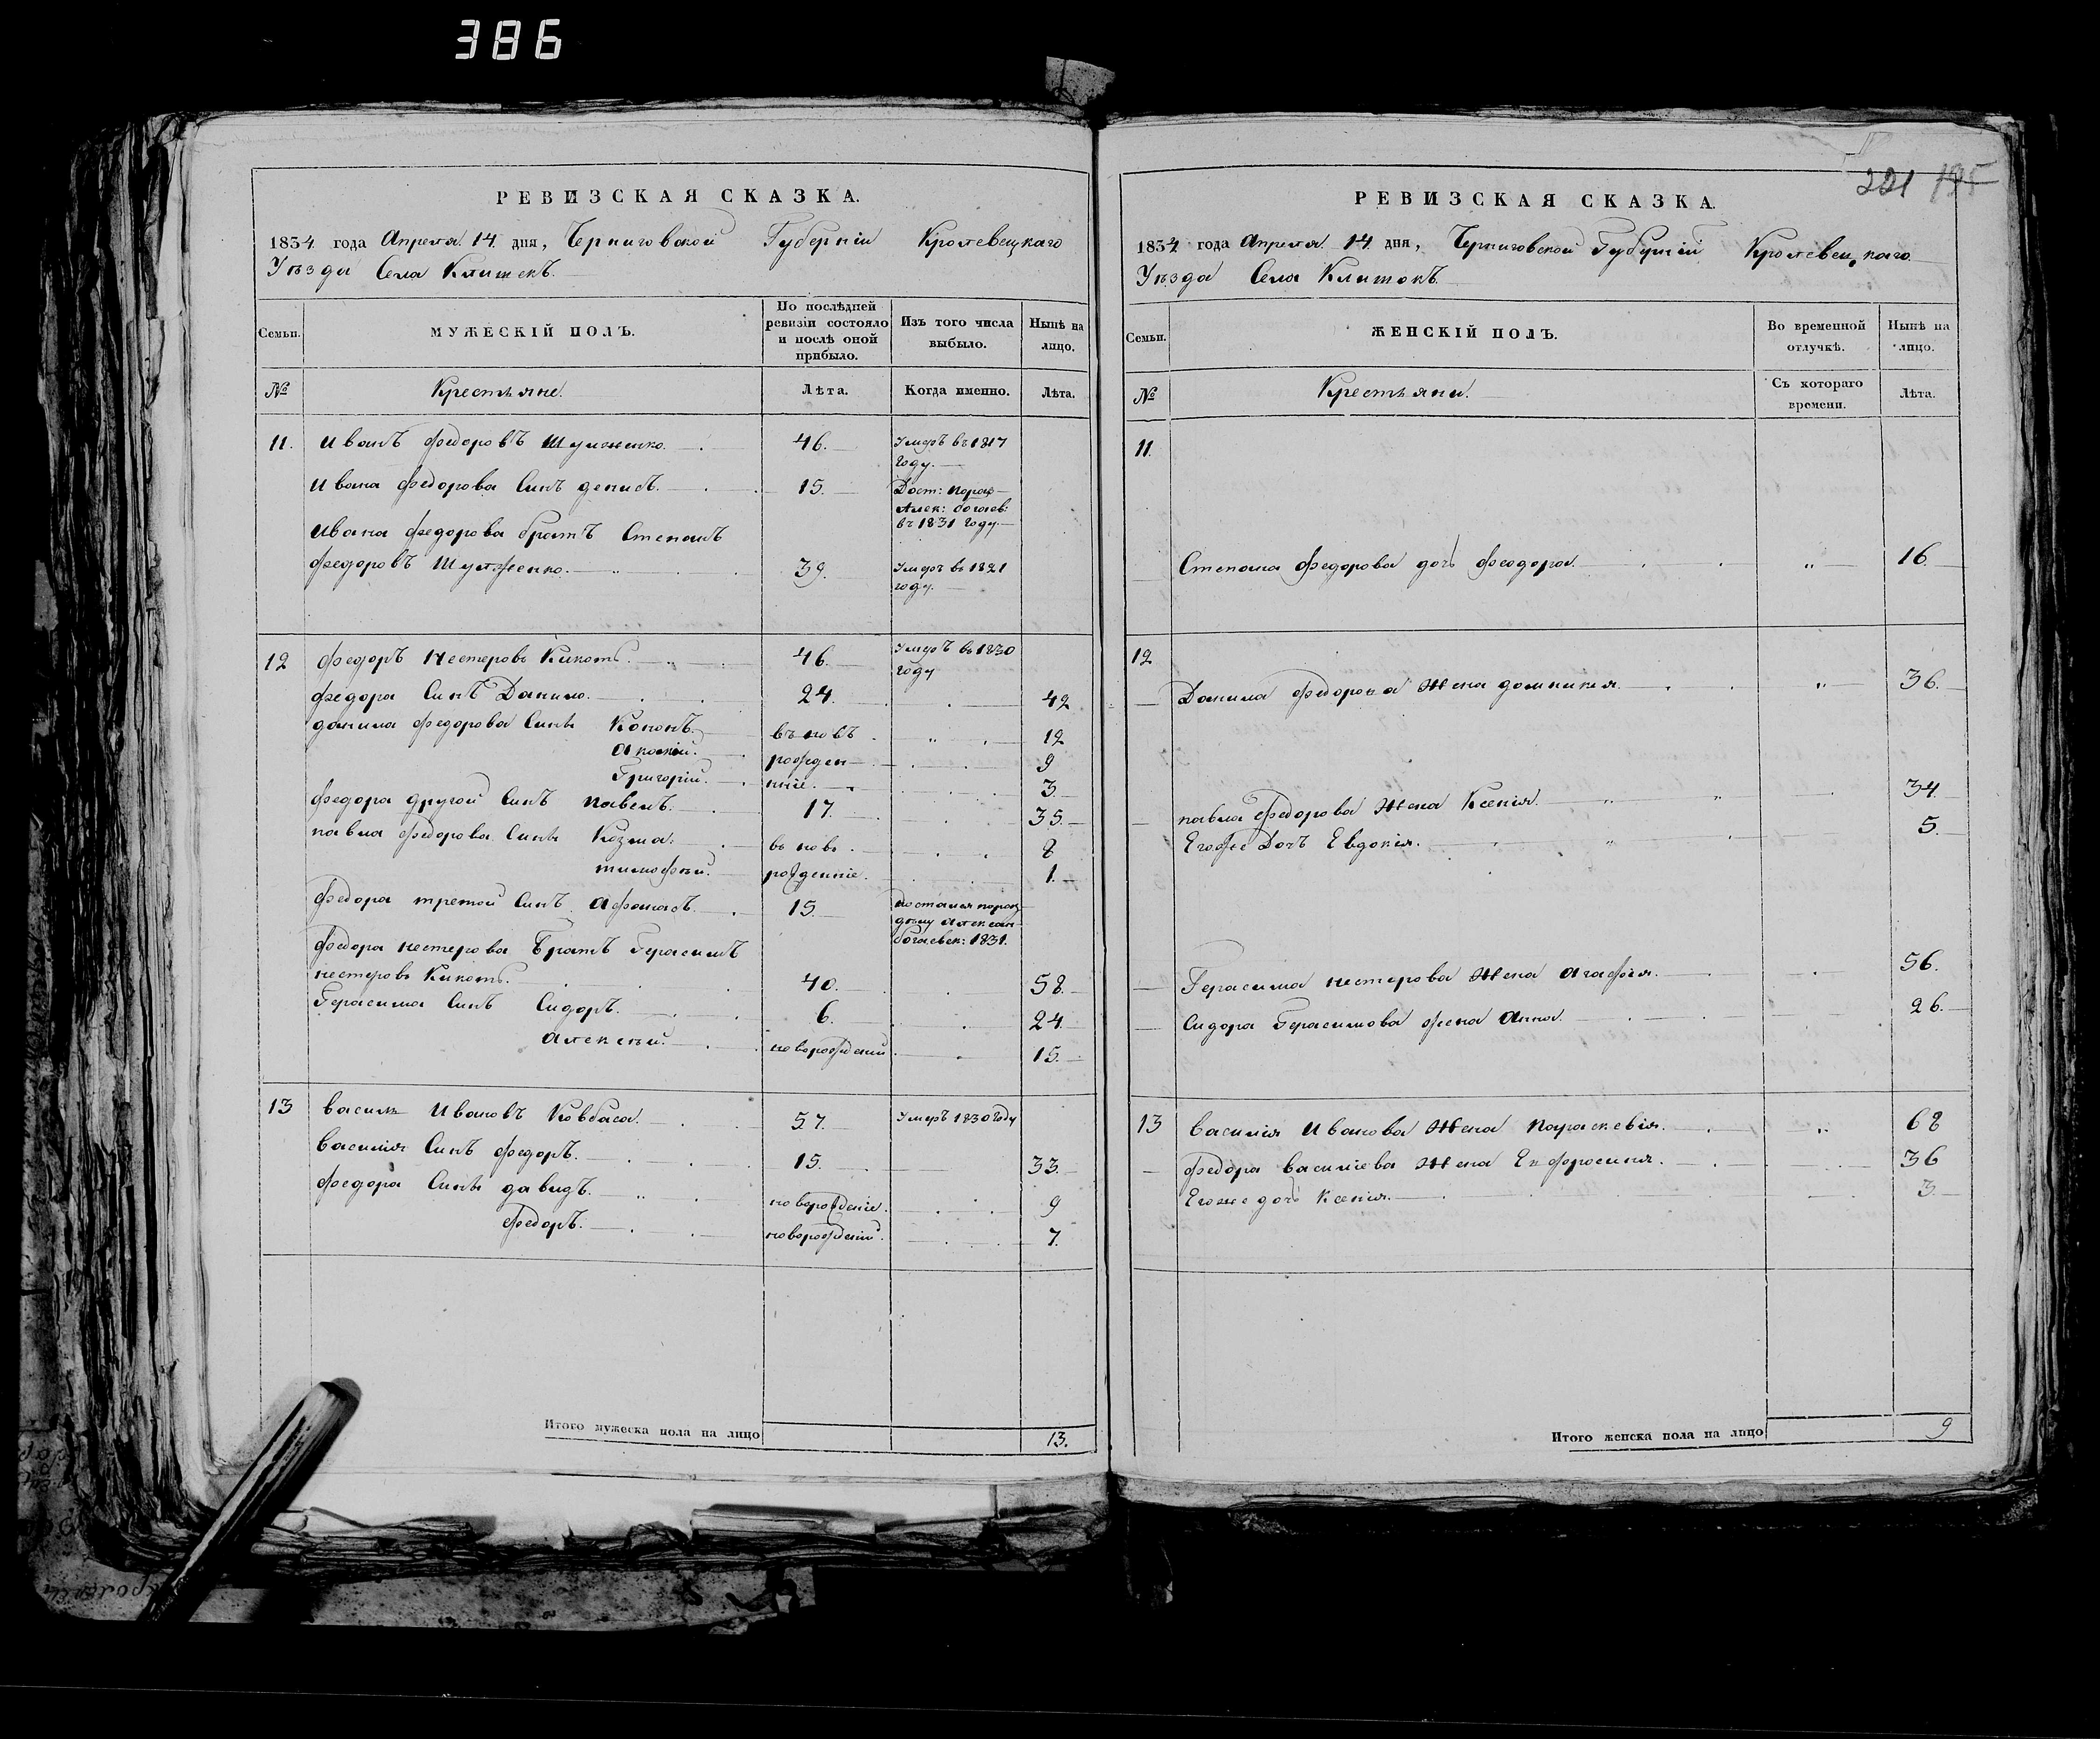 386
РЕВИЗСКАЯ СКАЗКА.
1834 года Апреля 14 дня, Черниговской Губерніи Кролевецкаго
Уезда Села Клишекъ.
Семьи. МУЖЕСКІЙ ПОЛЪ. По послѣдней ревизіи состояло и послѣ оной прибыло. Изъ того числа выбыло. Нынѣ на лицо.
№ Крестьяне. Лѣта. Когда именно. Лѣта.
11. Иванъ Федоровъ 46. Умеръ въ 1817 году.
Ивана Федорова Синъ Денисъ. 15. въ 1831 году.
Ивана Федорова братъ Степанъ
Федоровъ 39. Умеръ въ 1821 году.
12 Федоръ Нестеровъ Кикоть. 46. Умеръ въ 1830 году
Федора Синъ Данило. 24. 42
Данила Федорова Сини Кононъ. въ новъ 12
рожден 9
Григорій. ніие. 3.
Федора другой Синъ Павелъ. 17. 35.
Павла Федорова Сини Козма. въ новъ 8
Тимофѣй. рожденніе. 1.
Федора третой Синъ Афанасъ. 15. 1831.
Федора Нестерова Братъ Герасимъ
Нестеровъ Кикоть. 40. 58.
Герасима Синъ Сидоръ. 6. 24.
Алексѣй. новорожденій 15.
13 Василь Ивановъ Ковбаса. 57. Умеръ 1830 году
Василія Синъ Федоръ. 15. 33.
Федора Сини Давидъ. новорожденіе. 9
Федоръ. новорожденій. 7.
Итого мужеска пола на лицо 13.
221 195
РЕВИЗСКАЯ СКАЗКА.
1834 года Апреля 14 дня, Черниговской Губерніи Кролевецкаго
Уезда Села Клишокъ.
Семьи. ЖЕНСКІЙ ПОЛЪ. Во временной отлучкѣ. Нынѣ на лицо.
№ Крестьяни. Съ котораго времени. Лѣта.
11.
Степана Федорова дочь Феодора. „ 16.
12
Данила Федорова Жена Домникия. „ 36.
Павла Федорова Жена Ксенія. 34.
Егоже Дочъ Евдокія. 5.
Герасима Нестерова Жена Агафія. 56.
Сидора Герасимова жена Анна. 26.
13 Василія Иванова Жена Параскевія. „ 68
Федора Василіева Жена Ефросиня. 36
Егоже дочь Ксенія. 3.
Итого женска пола на лицо 9